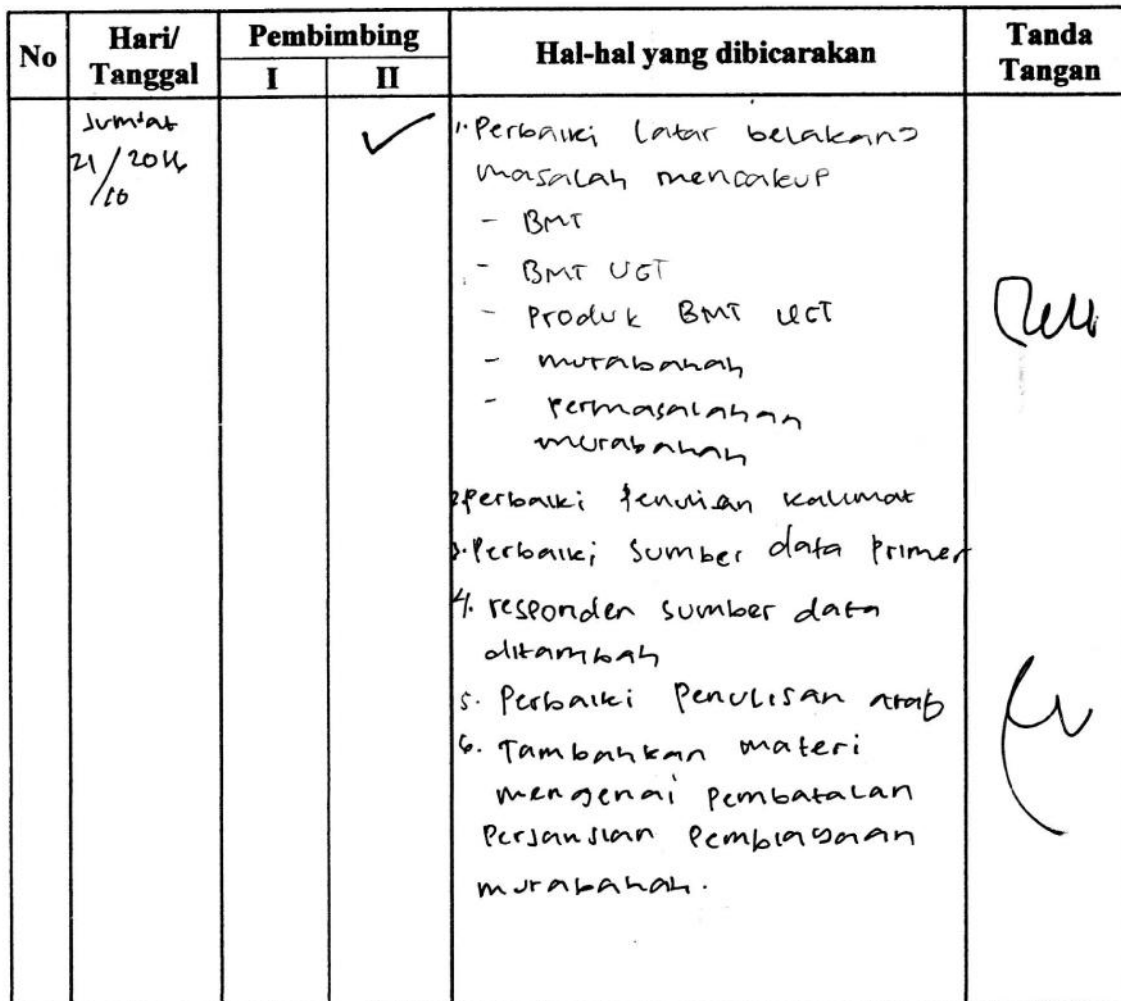 No Hari/ Tanggal Pembimbing I II Hal-hal yang dibicarakan Tanda Tangan
Jum'at
21/10 2016
1. Perbaiki latar belakang
masalah mencakup
- BMT
- BMT UGT
- Produk BMT UGT
- murabahah
- permasalahan
murabahah
2. Perbaiki penulisan kalimat
3. Perbaiki sumber data primer
4. responden sumber data
ditambah
5. Perbaiki Penulisan arab
6. Tambahkan materi
mengenai pembatalan
Perjanjian Pembiayaan
murabahah.